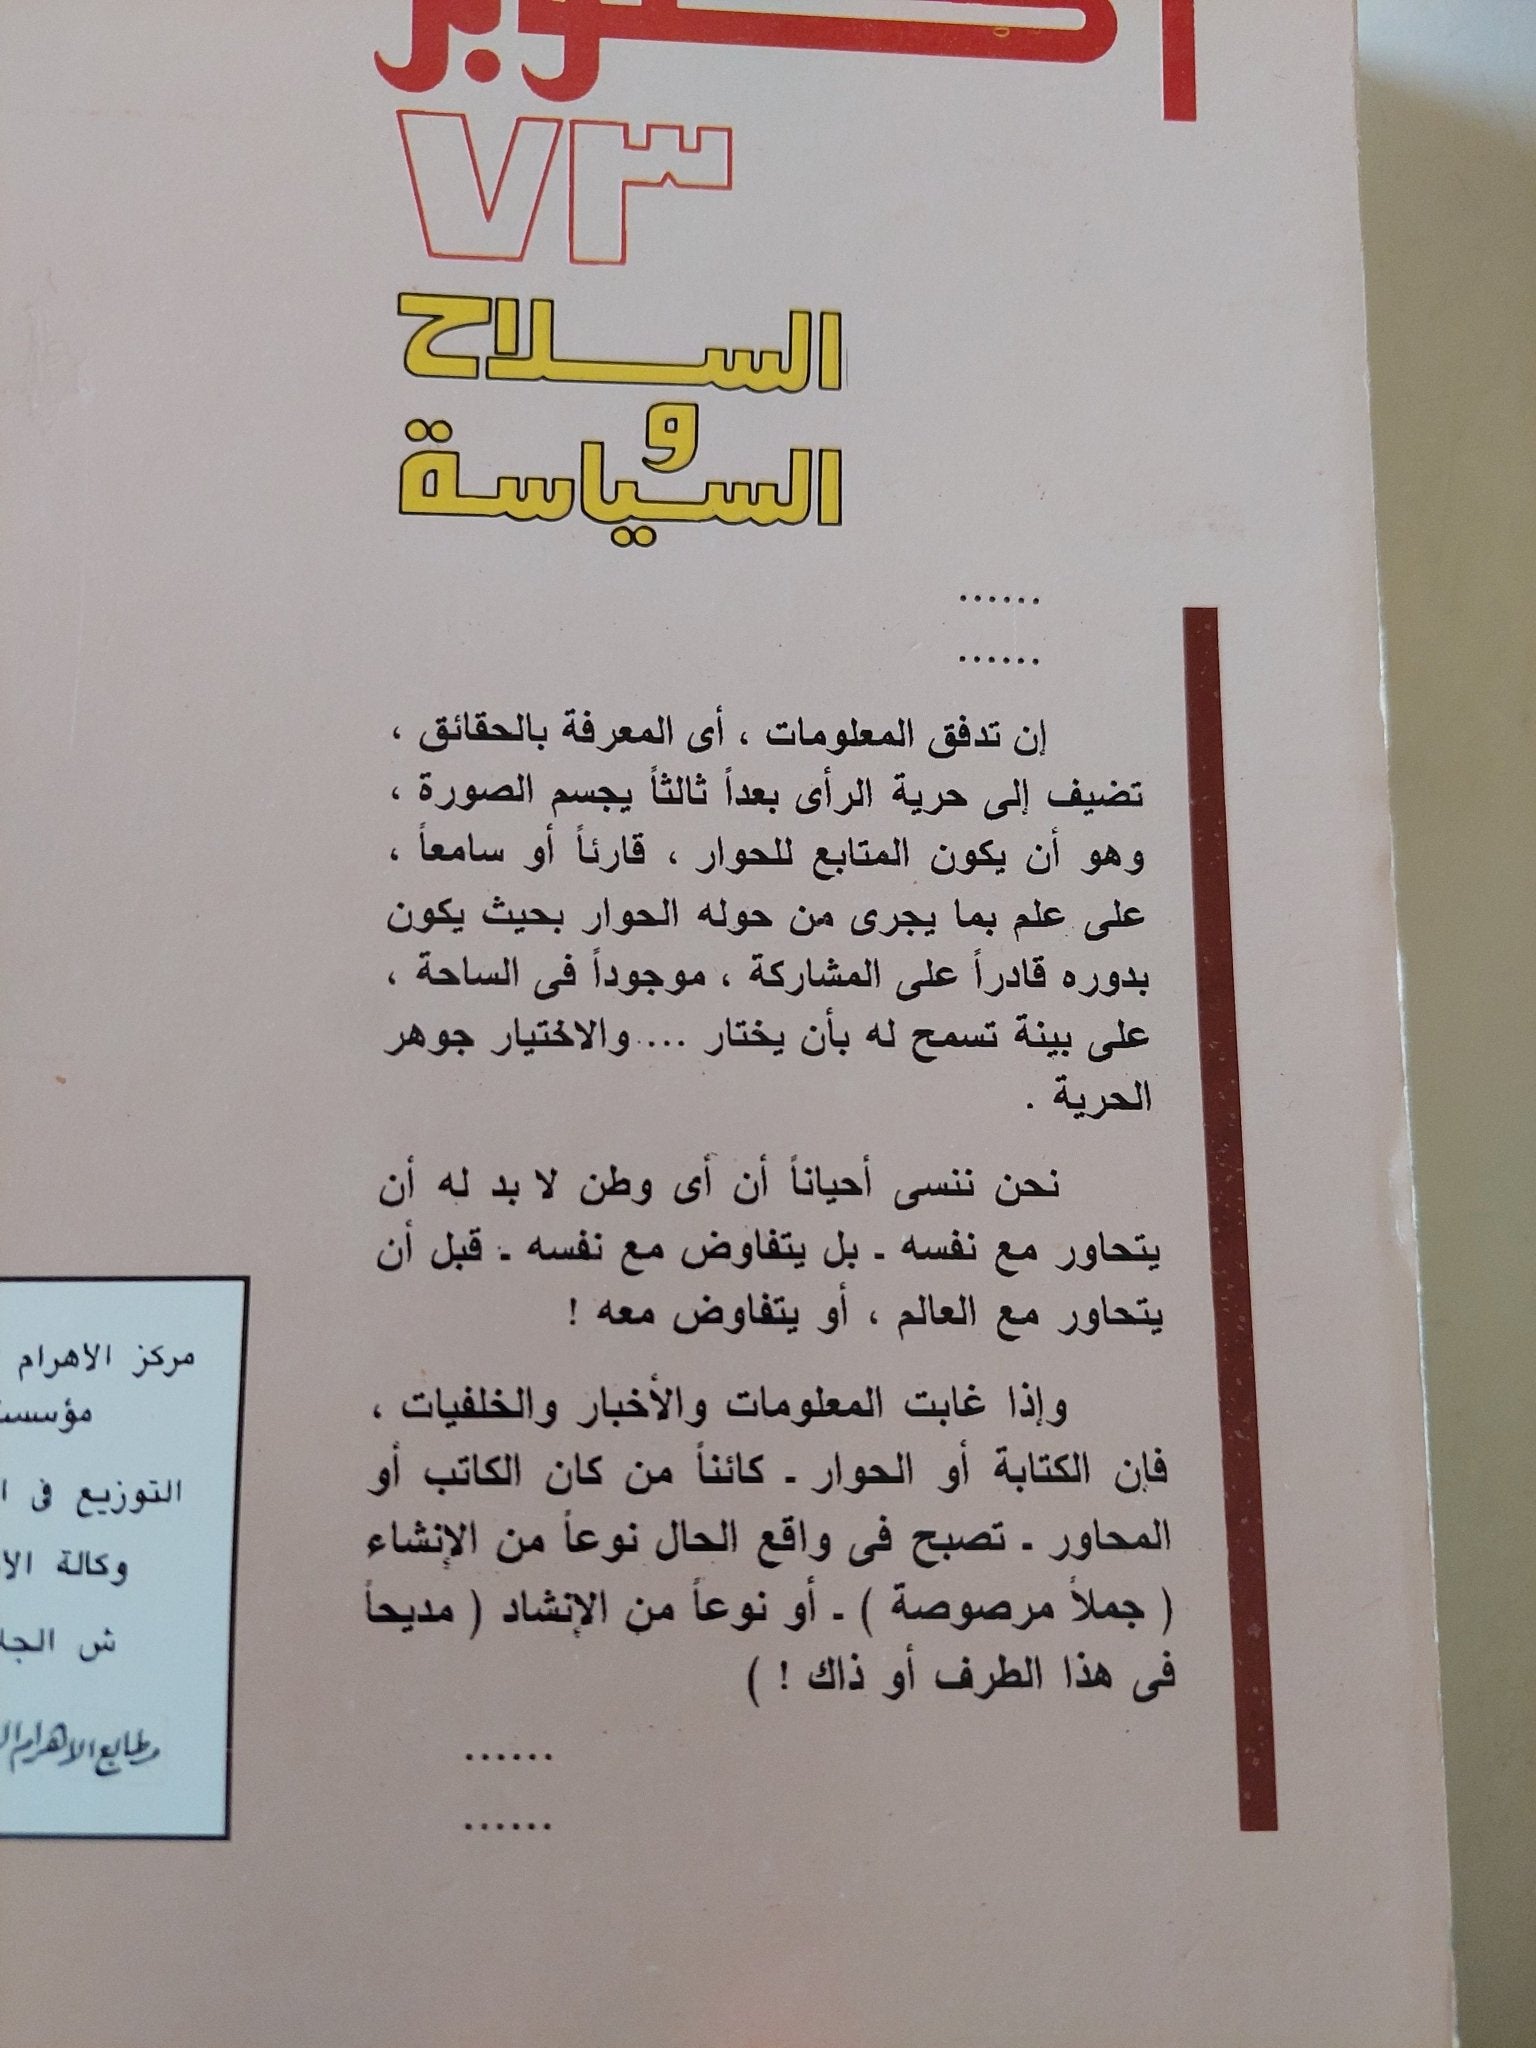 أكتوبر
٧٣
السلاح
و
السياسة
......
......
إن تدفق المعلومات ، أى المعرفة بالحقائق ،
تضيف إلى حرية الرأى بعداً ثالثاً يجسم الصورة ،
وهو أن يكون المتابع للحوار ، قارئاً أو سامعاً ،
على علم بما يجرى من حوله الحوار بحيث يكون
بدوره قادراً على المشاركة ، موجوداً فى الساحة ،
على بينة تسمح له بأن يختار ... والاختيار جوهر
الحرية .
نحن ننسى أحياناً أن أى وطن لا بد له أن
يتحاور مع نفسه ـ بل يتفاوض مع نفسه ـ قبل أن
يتحاور مع العالم ، أو يتفاوض معه !
وإذا غابت المعلومات والأخبار والخلفيات ،
فإن الكتابة أو الحوار ـ كائناً من كان الكاتب أو
المحاور ـ تصبح فى واقع الحال نوعاً من الإنشاء
( جملاً مرصوصة ) ـ أو نوعاً من الإنشاد ( مديحاً
فى هذا الطرف أو ذاك ! )
......
......
مركز الاهرام
التوزيع فى
وكالة
ش
مطابع الاهرام